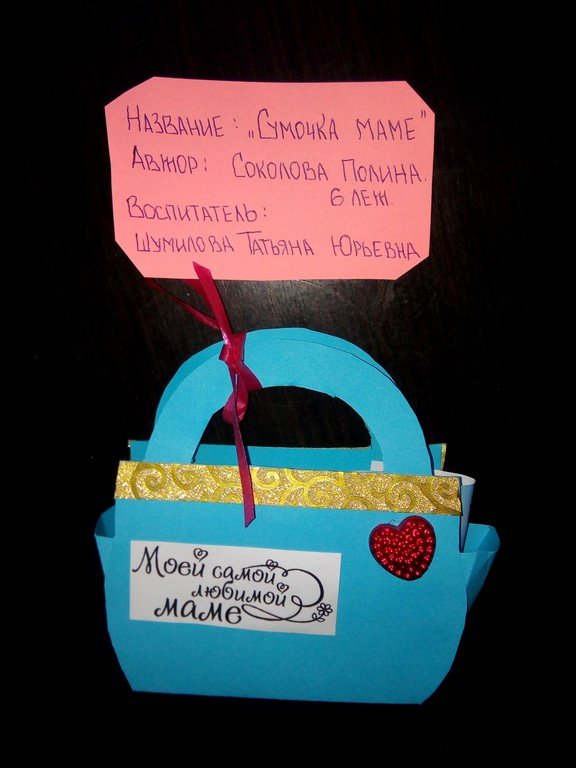 Название: „Сумочка маме"
Автор: Соколова Полина.
6 лет.
Воспитатель:
Шумилова Татьяна Юрьевна
Моей самой
любимой
маме